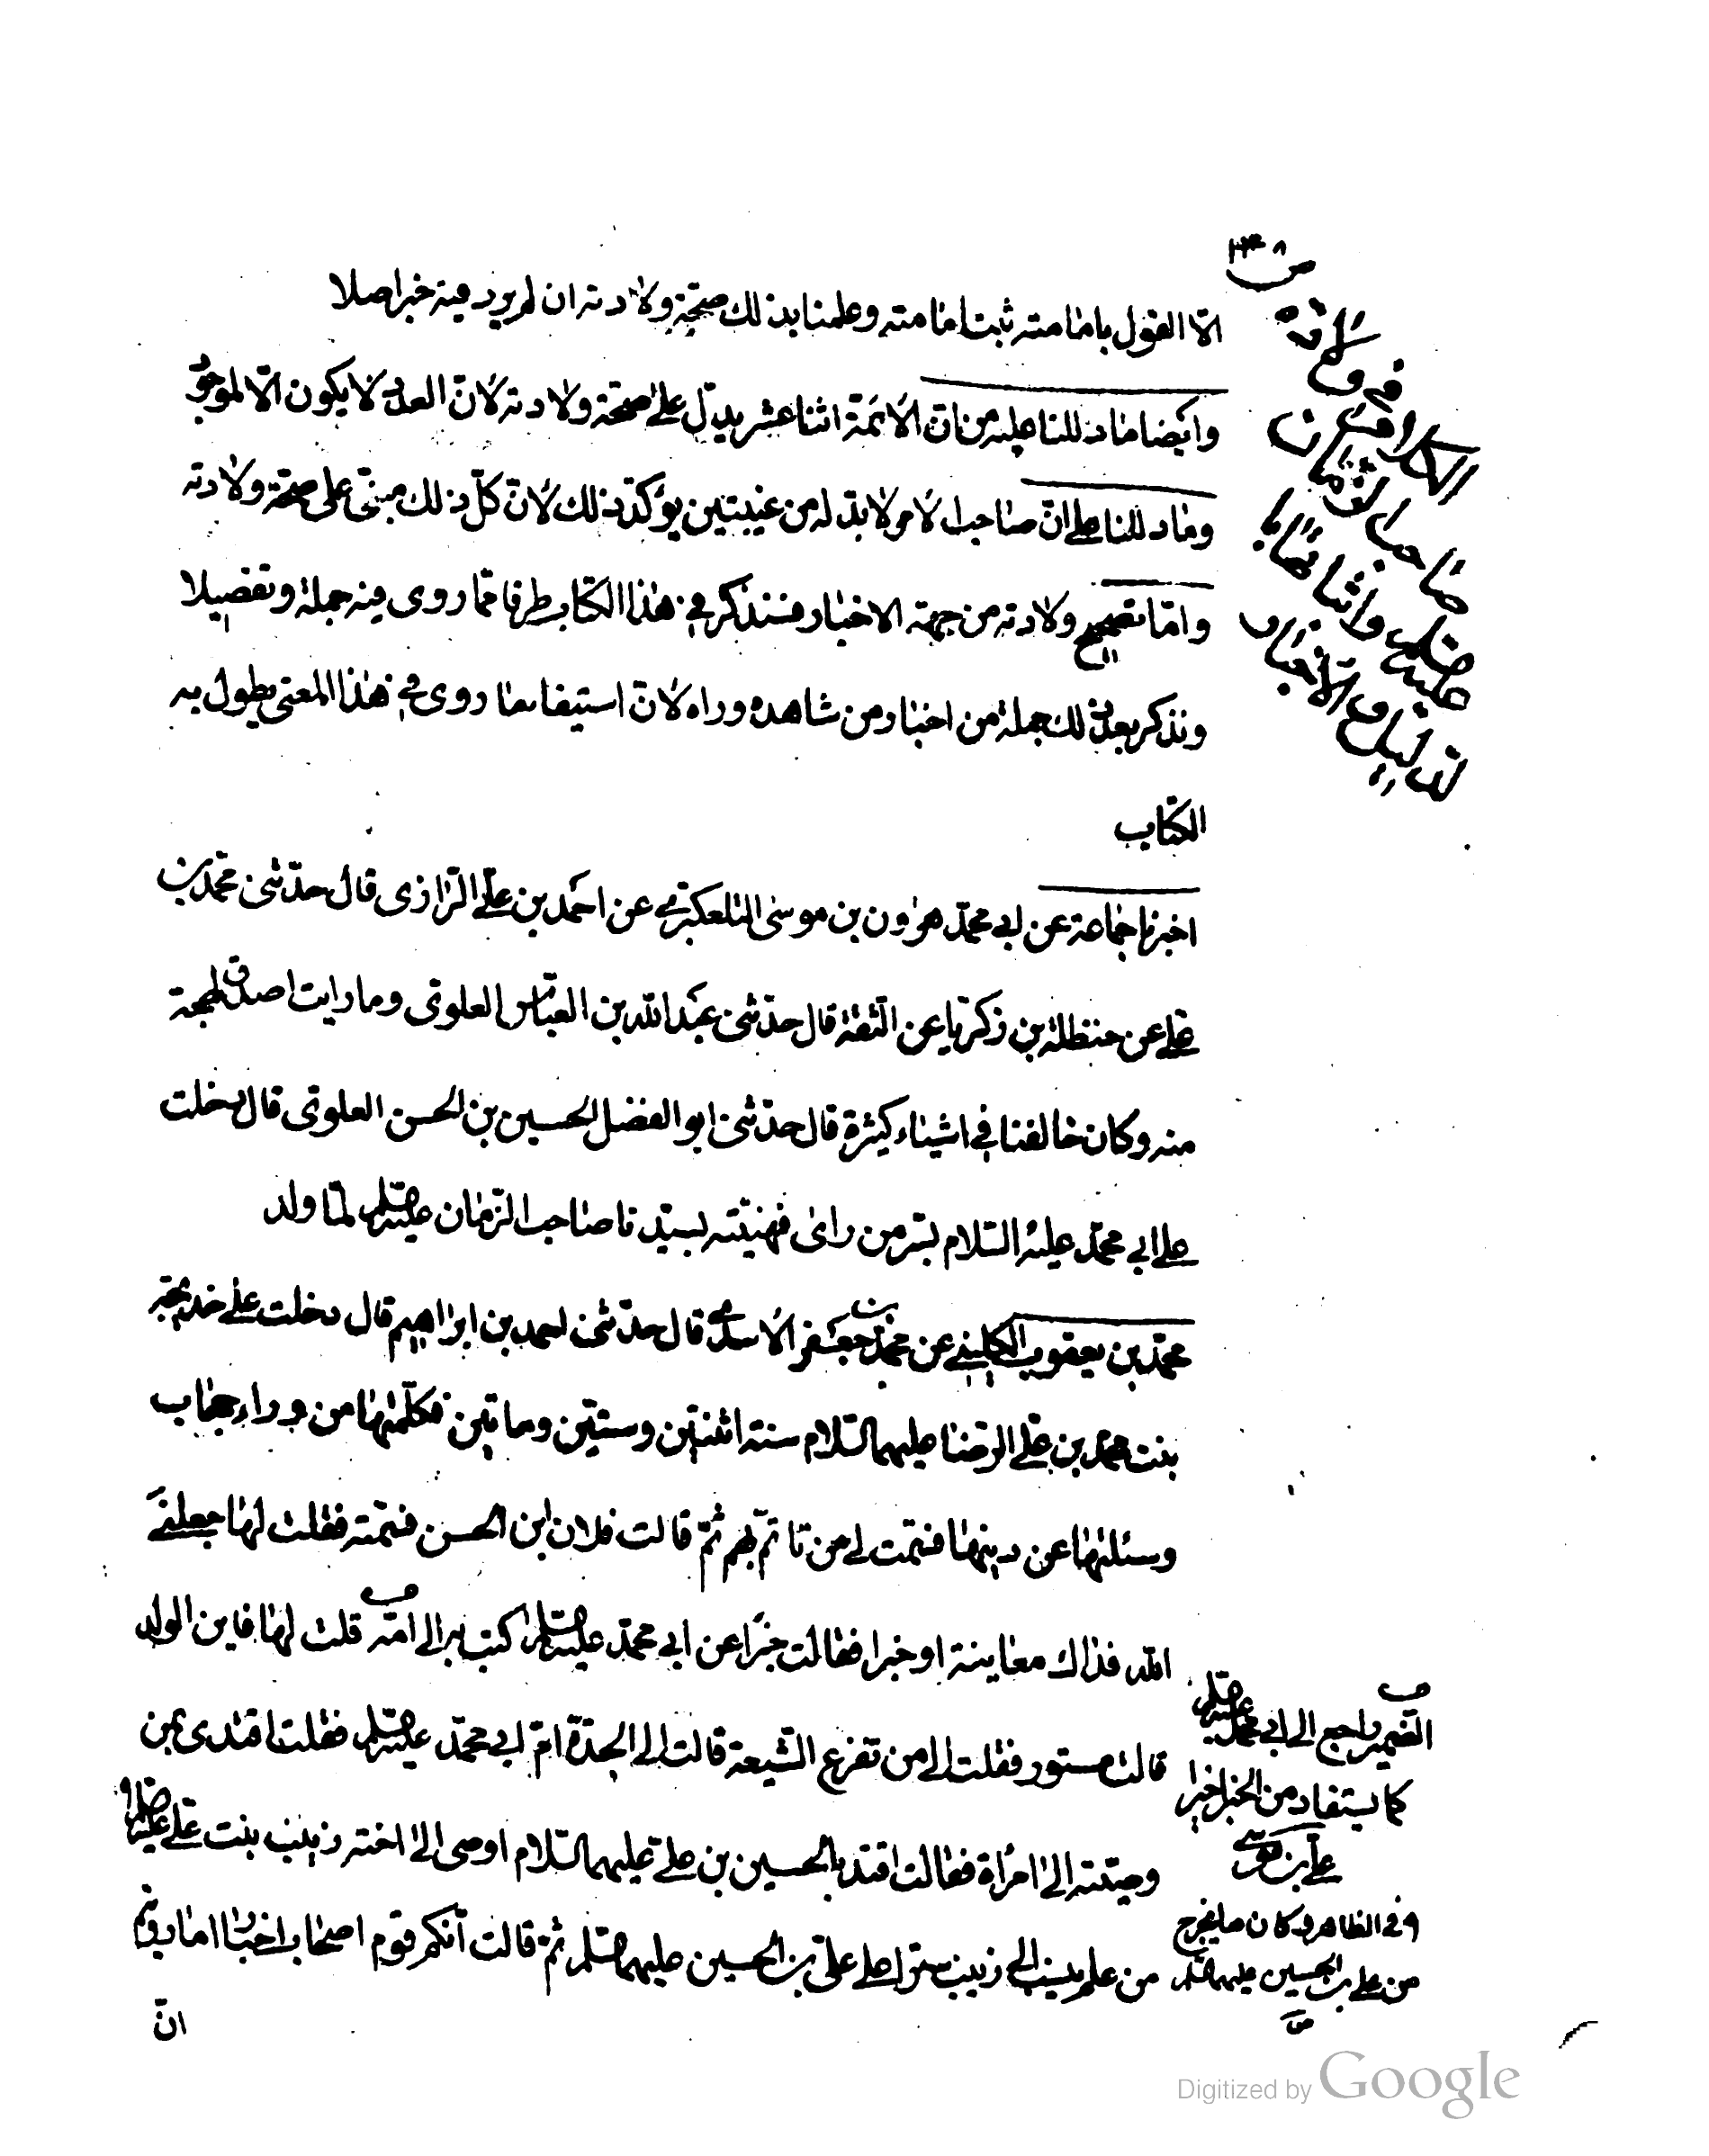 الا القول بامامته ثبت امامته وعلمنا بذلك صحة ولادته ان لم يرد فيه خبر اصلا
وايضا ما دللنا عليه من ان الائمة اثنا عشر يدل على صحة ولادته لان العدد لا يكون الا لموجود
وما دللنا على ان صاحب الامر لا بد له من غيبتين يؤكد ذلك لان كل ذلك مبنى على صحة ولادته
واما تصحيح ولادته من جهة الاخبار فسنذكر في هذا الكتاب طرفا مما روى فيه جملة وتفصيلا
ونذكر بعد ذلك جملة من اخبار من شاهده وراه لان استيفاء ما روى في هذا المعنى يطول به
الكتاب
اخبرنا جماعة عن ابي محمد هرون بن موسى التلعكبرى عن احمد بن على الرازى قال حدثنى محمد بن
على عن حنظلة بن زكريا عن الثقة قال حدثنى عبد الله بن العباس العلوى وما رايت اصدق لهجة
منه وكان خالفنا في اشياء كثيرة قال حدثنى ابو الفضل الحسين بن الحسن العلوى قال دخلت
على ابي محمد عليه السلام بسر من راى فهنيته بسيدنا صاحب الزمان عليه السلام لما ولد
محمد بن يعقوب الكلينى عن محمد بن جعفر الاسدى قال حدثنى احمد بن ابراهيم قال دخلت على خديجة
بنت محمد بن على الرضا عليهما السلام سنة اثنتين وستين ومأتين فكلمتها من وراء حجاب
وسئلتها عن دينها فسمت لى من تاتم بهم ثم قالت فلان ابن الحسن فسمته فقلت لها جعلنى
الله فداك معاينة او خبرا فقالت خبرا عن ابي محمد عليه السلم كتب به الى امه قلت لها فاين الولد
قالت مستور فقلت الى من تفزع الشيعة قالت الى الجدة ام ابي محمد عليه السلم فقلت اقتدى بمن
وصيته الى امرأة فقالت اقتد بالحسين بن على عليهما السلام اوصى الى اخته زينب بنت على عليه السلم
من علم ينسب الى زينب سترا على على بن الحسين عليهما السلم ثم قالت انكم قوم اصحاب اخبار اما رويتم
ان
الضمير راجع الى ابي محمد عليه السلم
كما يستفاد من الخبر
في الظاهر وكان ما يخرج
من على بن الحسين عليهما السلم